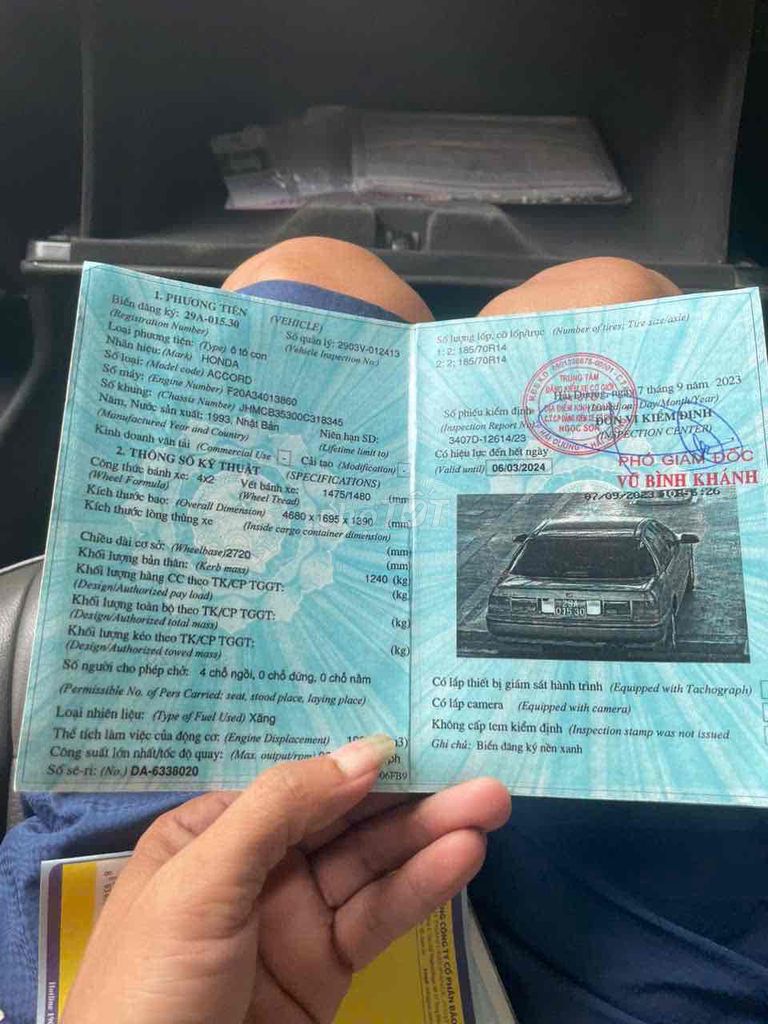 1. PHƯƠNG TIỆN (VEHICLE)
Biển đăng ký: 29A-015.30 Số quản lý: 2903V-012413
(Registration Number) (Vehicle Inspection No.)
Loại phương tiện: (Type) ô tô con
Nhãn hiệu: (Mark) HONDA
Số loại: (Model code) ACCORD
Số máy: (Engine Number) F20A34013860
Số khung: (Chassis Number) JHMCB35300C318345
Năm, Nước sản xuất: 1993, Nhật Bản Niên hạn SD:
(Manufactured Year and Country) (Lifetime limit to)
Kinh doanh vận tải (Commercial Use) - Cải tạo (Modification) -
2. THÔNG SỐ KỸ THUẬT (SPECIFICATIONS)
Công thức bánh xe: 4x2 Vết bánh xe: 1475/1480 (mm
(Wheel Formula) (Wheel Tread)
Kích thước bao: (Overall Dimension) 4680 x 1695 x 1390 (mm
Kích thước lòng thùng xe (Inside cargo container dimension)
Chiều dài cơ sở: (Wheelbase)2720 (mm)
Khối lượng bản thân: (Kerb mass) 1240 (kg)
Khối lượng hàng CC theo TK/CP TGGT: (kg
(Design/Authorized pay load)
Khối lượng toàn bộ theo TK/CP TGGT: (kg)
(Design/Authorized total mass)
Khối lượng kéo theo TK/CP TGGT: (kg)
(Design/Authorized towed mass)
Số người cho phép chở: 4 chỗ ngồi, 0 chỗ đứng, 0 chỗ nằm
(Permissible No. of Pers Carried: seat, stood place, laying place)
Loại nhiên liệu: (Type of Fuel Used) Xăng
Thể tích làm việc của động cơ: (Engine Displacement)
Công suất lớn nhất/tốc độ quay: (Max. output/rpm) ph
Số sê-ri: (No.) DA-6336020 06FB9
Số lượng lốp, cỡ lốp/trục (Number of tires; Tire size/axle)
1: 2; 185/70R14
2: 2; 185/70R14
TRUNG TÂM
ĐĂNG KIỂM XE CƠ GIỚI
NGỌC SƠN
Hải Dương, ngày 7 tháng 9 năm 2023
(Issued on: Day/Month/Year)
Số phiếu kiểm định ĐƠN VỊ KIỂM ĐỊNH
(Inspection Report No) (INSPECTION CENTER)
3407D-12614/23
Có hiệu lực đến hết ngày PHÓ GIÁM ĐỐC
(Valid until) 06/03/2024 VŨ BÌNH KHÁNH
07/09/2023 10:56:26
29A
015.30
Có lắp thiết bị giám sát hành trình (Equipped with Tachograph)
Có lắp camera (Equipped with camera)
Không cấp tem kiểm định (Inspection stamp was not issued
Ghi chú: Biển đăng ký nền xanh
CHỢ TỐT